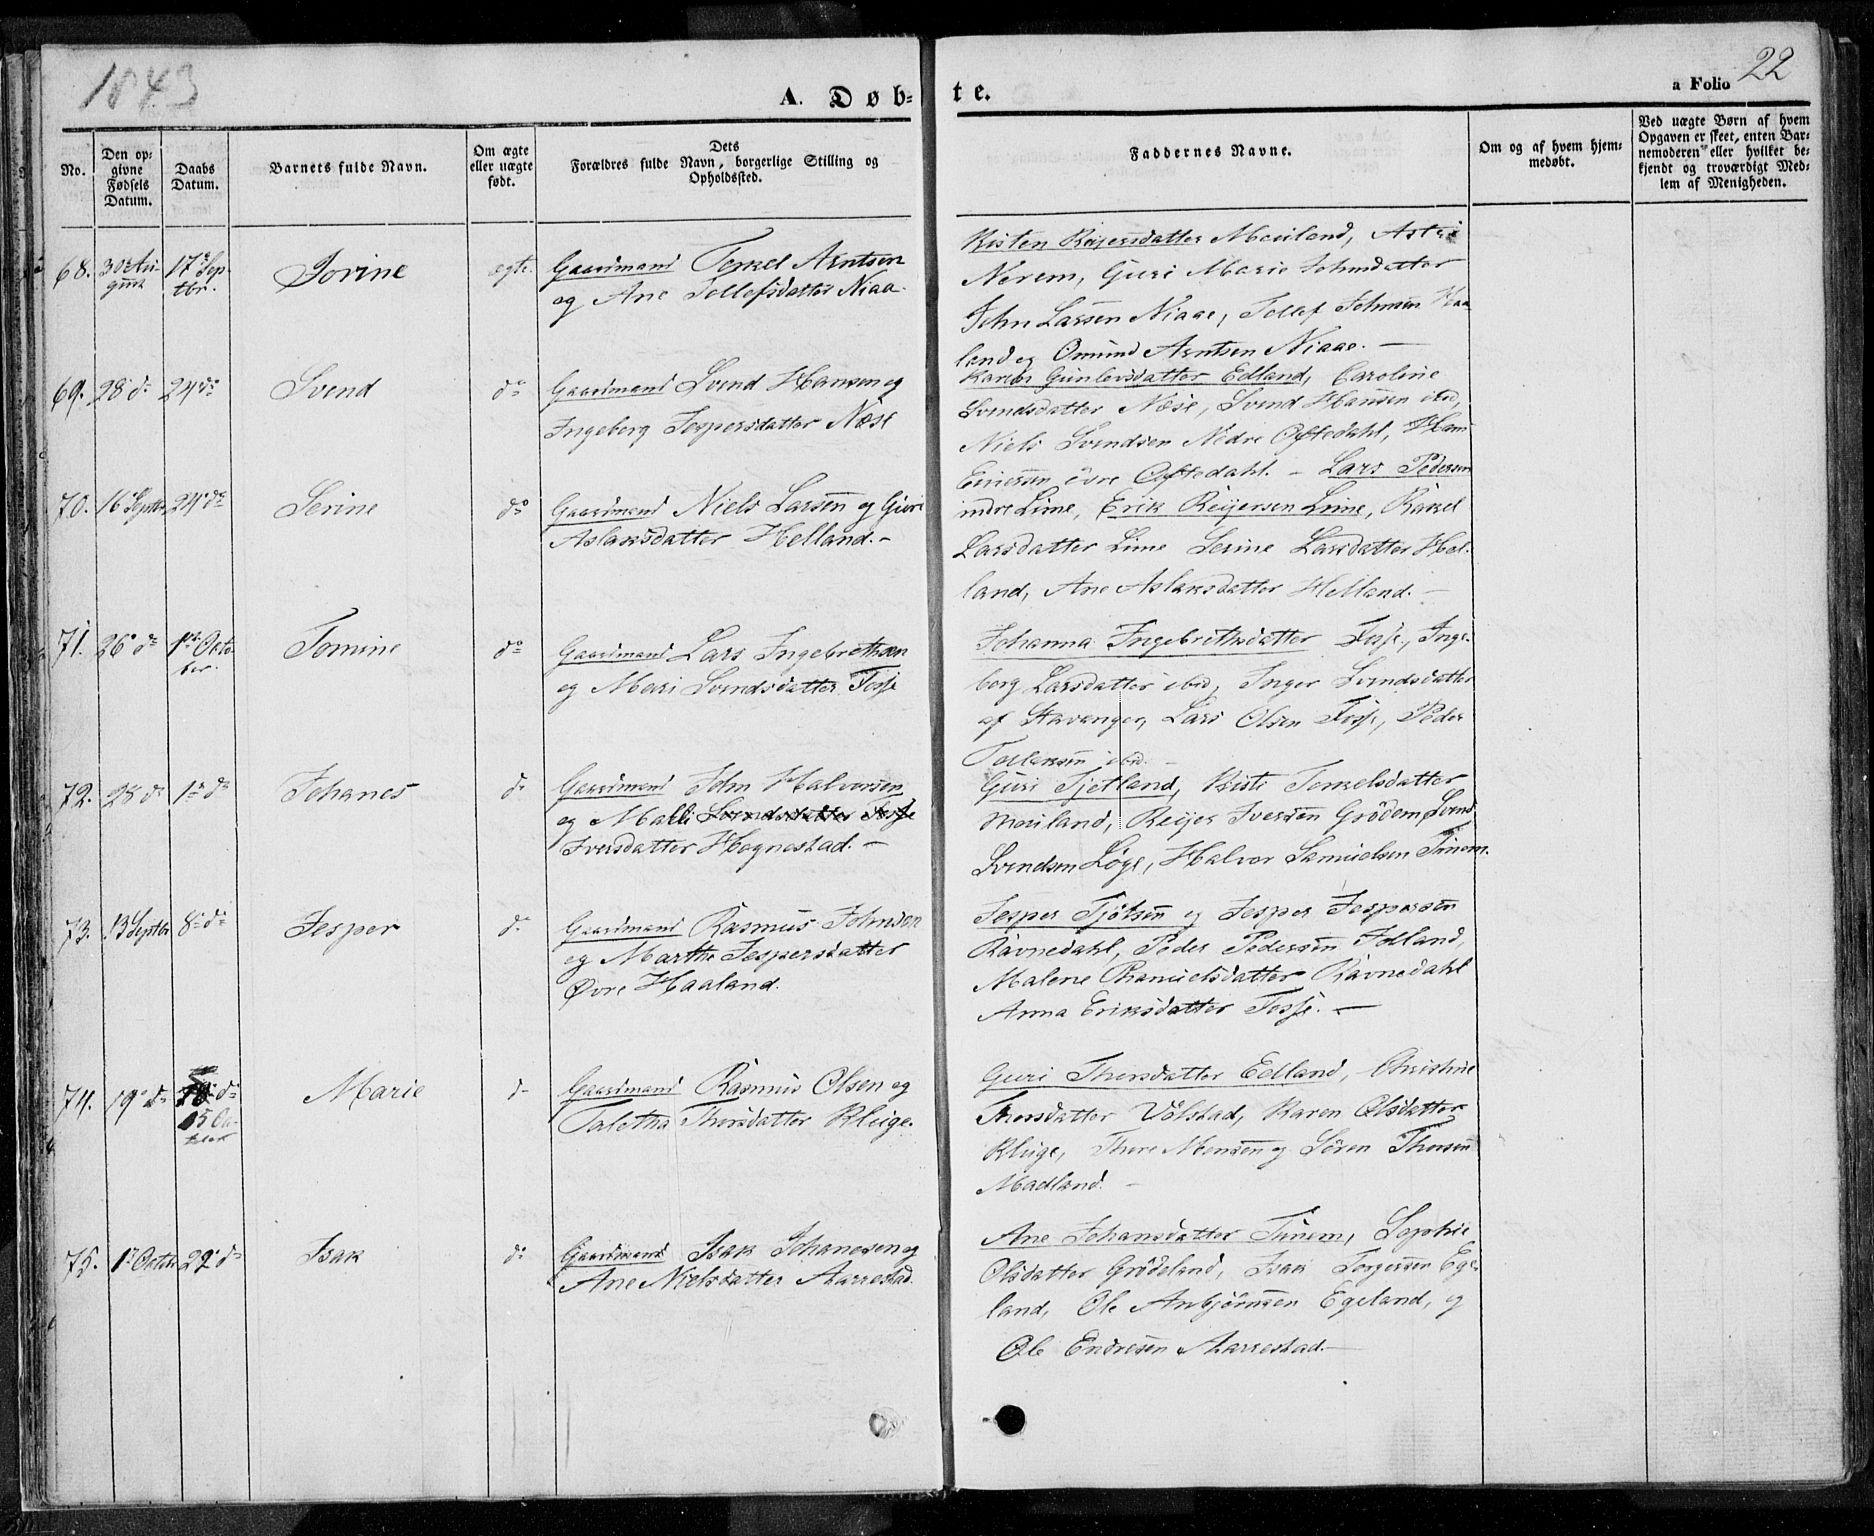 1843
A. Døb-
te.
a Folio 22
No.
Den op-
givne
Fødsels
Datum.
Daabs
Datum.
Barnets fulde Navn.
Om ægte
eller uægte
født.
Dets
Forældres fulde Navn, borgerlige Stilling og
Opholdssted.
Faddernes Navne.
Om og af hvem hjem-
medøbt.
Ved uægte Børn af hvem
Opgaven er skeet, enten Bar-
nemoderen eller hvilket be-
kjendt og troværdigt Med-
lem af Menigheden.
68. 30 Au- 17 Sep- Jovine ægte. Gaardmand Torkel Arntsen
gust tbr. og Ane Tollefsdatter Niaa.
Kisten Reiersdatter Mauland, Astri
Nerem, Guri Marie Johnsdatter
John Larsen Niaae, Tollef Johnsen Haa
land og Omund Arntsen Niaae. —
69. 28 do 24 do Svend do Gaardmand Svend Hansen og
Ingeborg Jespersdatter Næse
Karen Gunlevsdatter Edland, Caroline
Svendsdatter Næse, Svend Hansen ibd,
Niels Svendsen Nedre Oftedahl, Hans
Einersen övre Oftedahl. — Lars Pedersen
70. 16 Septbr 24 do Serine do Gaardmand Niels Larsen og Guri
Aslaksdatter Helland. -
indre Lime, Erik Reiersen Lime, Rakel
Larsdatter Lime Serine Larsdatter Hel-
land, Ane Aslaksdatter Helland. —
71. 26 do 1ste Octo- Tomine do Gaardmand Lars Ingebrethsen
ber. og Mari Svendsdatter Fosse
Johanna Ingebrethsdatter Fosse, Inge-
borg Larsdatter ibd, Inger Svendsdatter
af Stavanger, Lars Olsen Fosse, Peder
Torlaksen ibd. —
72. 28 do 1 do Johanes do Gaardmand John Halvorsen
og Malli Svendsdatter Fosse
Iversdatter Hognestad. —
Guri Tjetland, Kisti Torkelsdatter
Mauland, Reijer Iversen Grödem, Svend
Svendsen Løge, Halvor Samuelsen Tunem.
73. 13 Septbr 8 do Jesper do Gaardmand Rasmus Johnsen
og Marthe Jespersdatter
Øvre Haaland.
Jesper Tjötsen og Jesper Jespersen
Ravnedahl, Peder Pedersen Folland,
Malene Samuelsdatter Ravnedahl
Anna Eriksdatter Fosse. —
74. 19 do do Marie do Gaardmand Rasmus Olsen og
15 Oc-
tober Taletha Thorsdatter Kluge.
Guri Thorsdatter Edland, Christine
Thorsdatter Völstad, Karen Olsdatter
Kluge, Thore Monsen og Sören Thorsen
Madland. —
75. 1 Octbr 22 do Isak do Gaardmand Isak Johanesen og
Ane Nielsdatter Aarrestad.
Ane Johansdatter Tunem, Sophie
Olsdatter Grödeland, Isak Torgersen Ege-
land, Ole Anbjörnsen Egeland, og
Ole Endresen Aarrestad. —